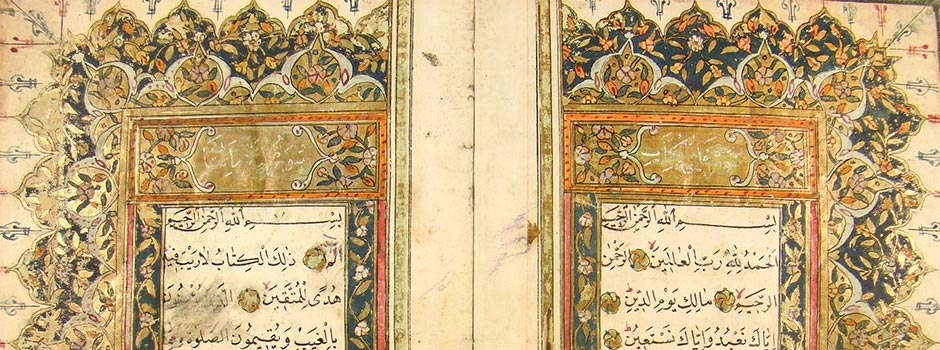 بسم الله الرحمن الرحيم
الحمد لله رب العالمين الرحمن
الرحيم مالك يوم الدين
اياك نعبد واياك نستعين
بسم الله الرحمن الرحيم
الم ذلك الكتاب لا ريب فيه
هدى للمتقين الذين يؤمنون
بالغيب ويقيمون الصلوة